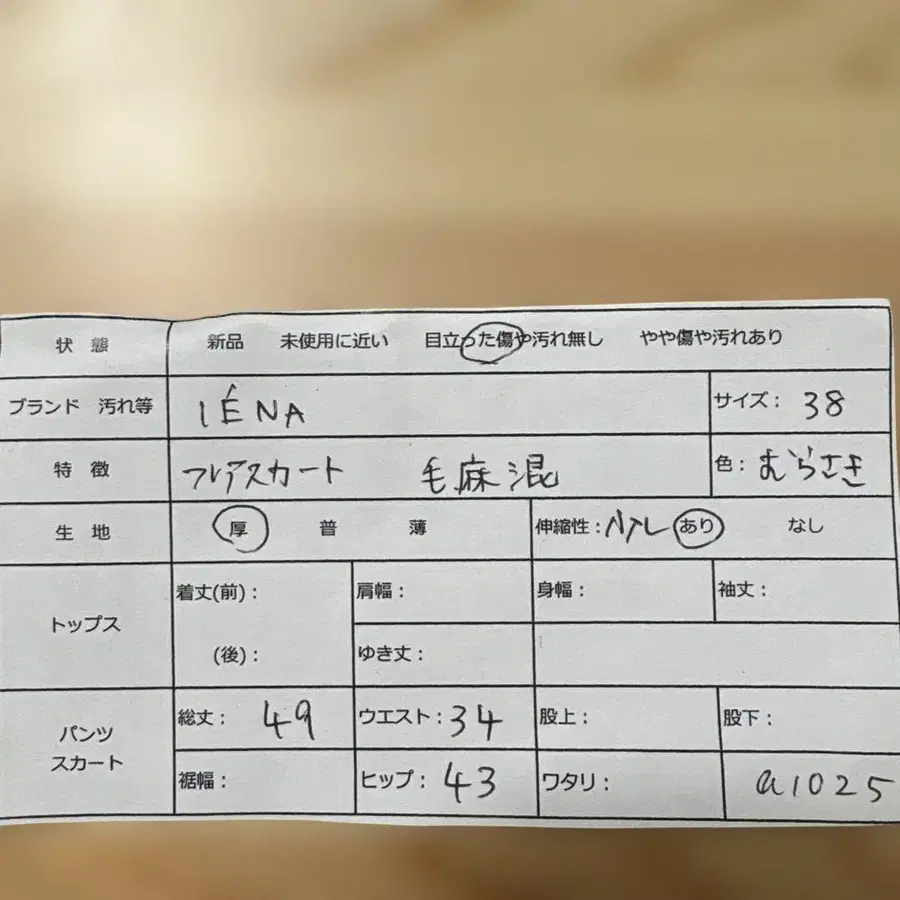 状 態 新品 未使用に近い 目立った傷や汚れ無し やや傷や汚れあり
ブランド 汚れ等 IÉNA サイズ: 38
特 徴 フレアスカート 毛麻混 色: むらさき
生 地 厚 普 薄 伸縮性: あり なし
トップス
着丈(前): 肩幅: 身幅: 袖丈:
(後): ゆき丈:
パンツ
スカート
総丈: 49 ウエスト: 34 股上: 股下:
裾幅: ヒップ: 43 ワタリ: a1025